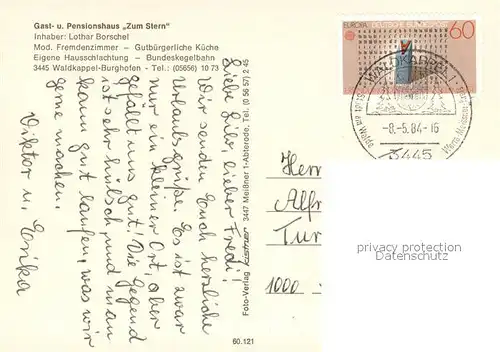 Gast- u. Pensionshaus „Zum Stern"
Inhaber: Lothar Borschel
Mod. Fremdenzimmer – Gutbürgerliche Küche
Eigene Hausschlachtung – Bundeskegelbahn
3445 Waldkappel-Burghofen - Tel.: (05656) 10 73
Liebe Lilo, lieber Fredi!
Wir senden Euch herzliche
Urlaubsgrüße. Es ist zwar
nur ein kleiner Ort, aber
gefällt uns gut! Die Gegend
ist sehr hübsch, und man
kann gut laufen, was wir
gerne machen.
Viktor u. Erika
Foto-Verlag Kistner 3447 Meißner 1-Abterode, Tel. (0 56 57) 2 45
60.121
EUROPA DEUTSCHE BUNDESPOST
60
WALDKAPPEL 1
-8.-5.84-16
3445
Stadt am Walde
Herr
Alfr
Tur
1000
privacy protection
Datenschutz